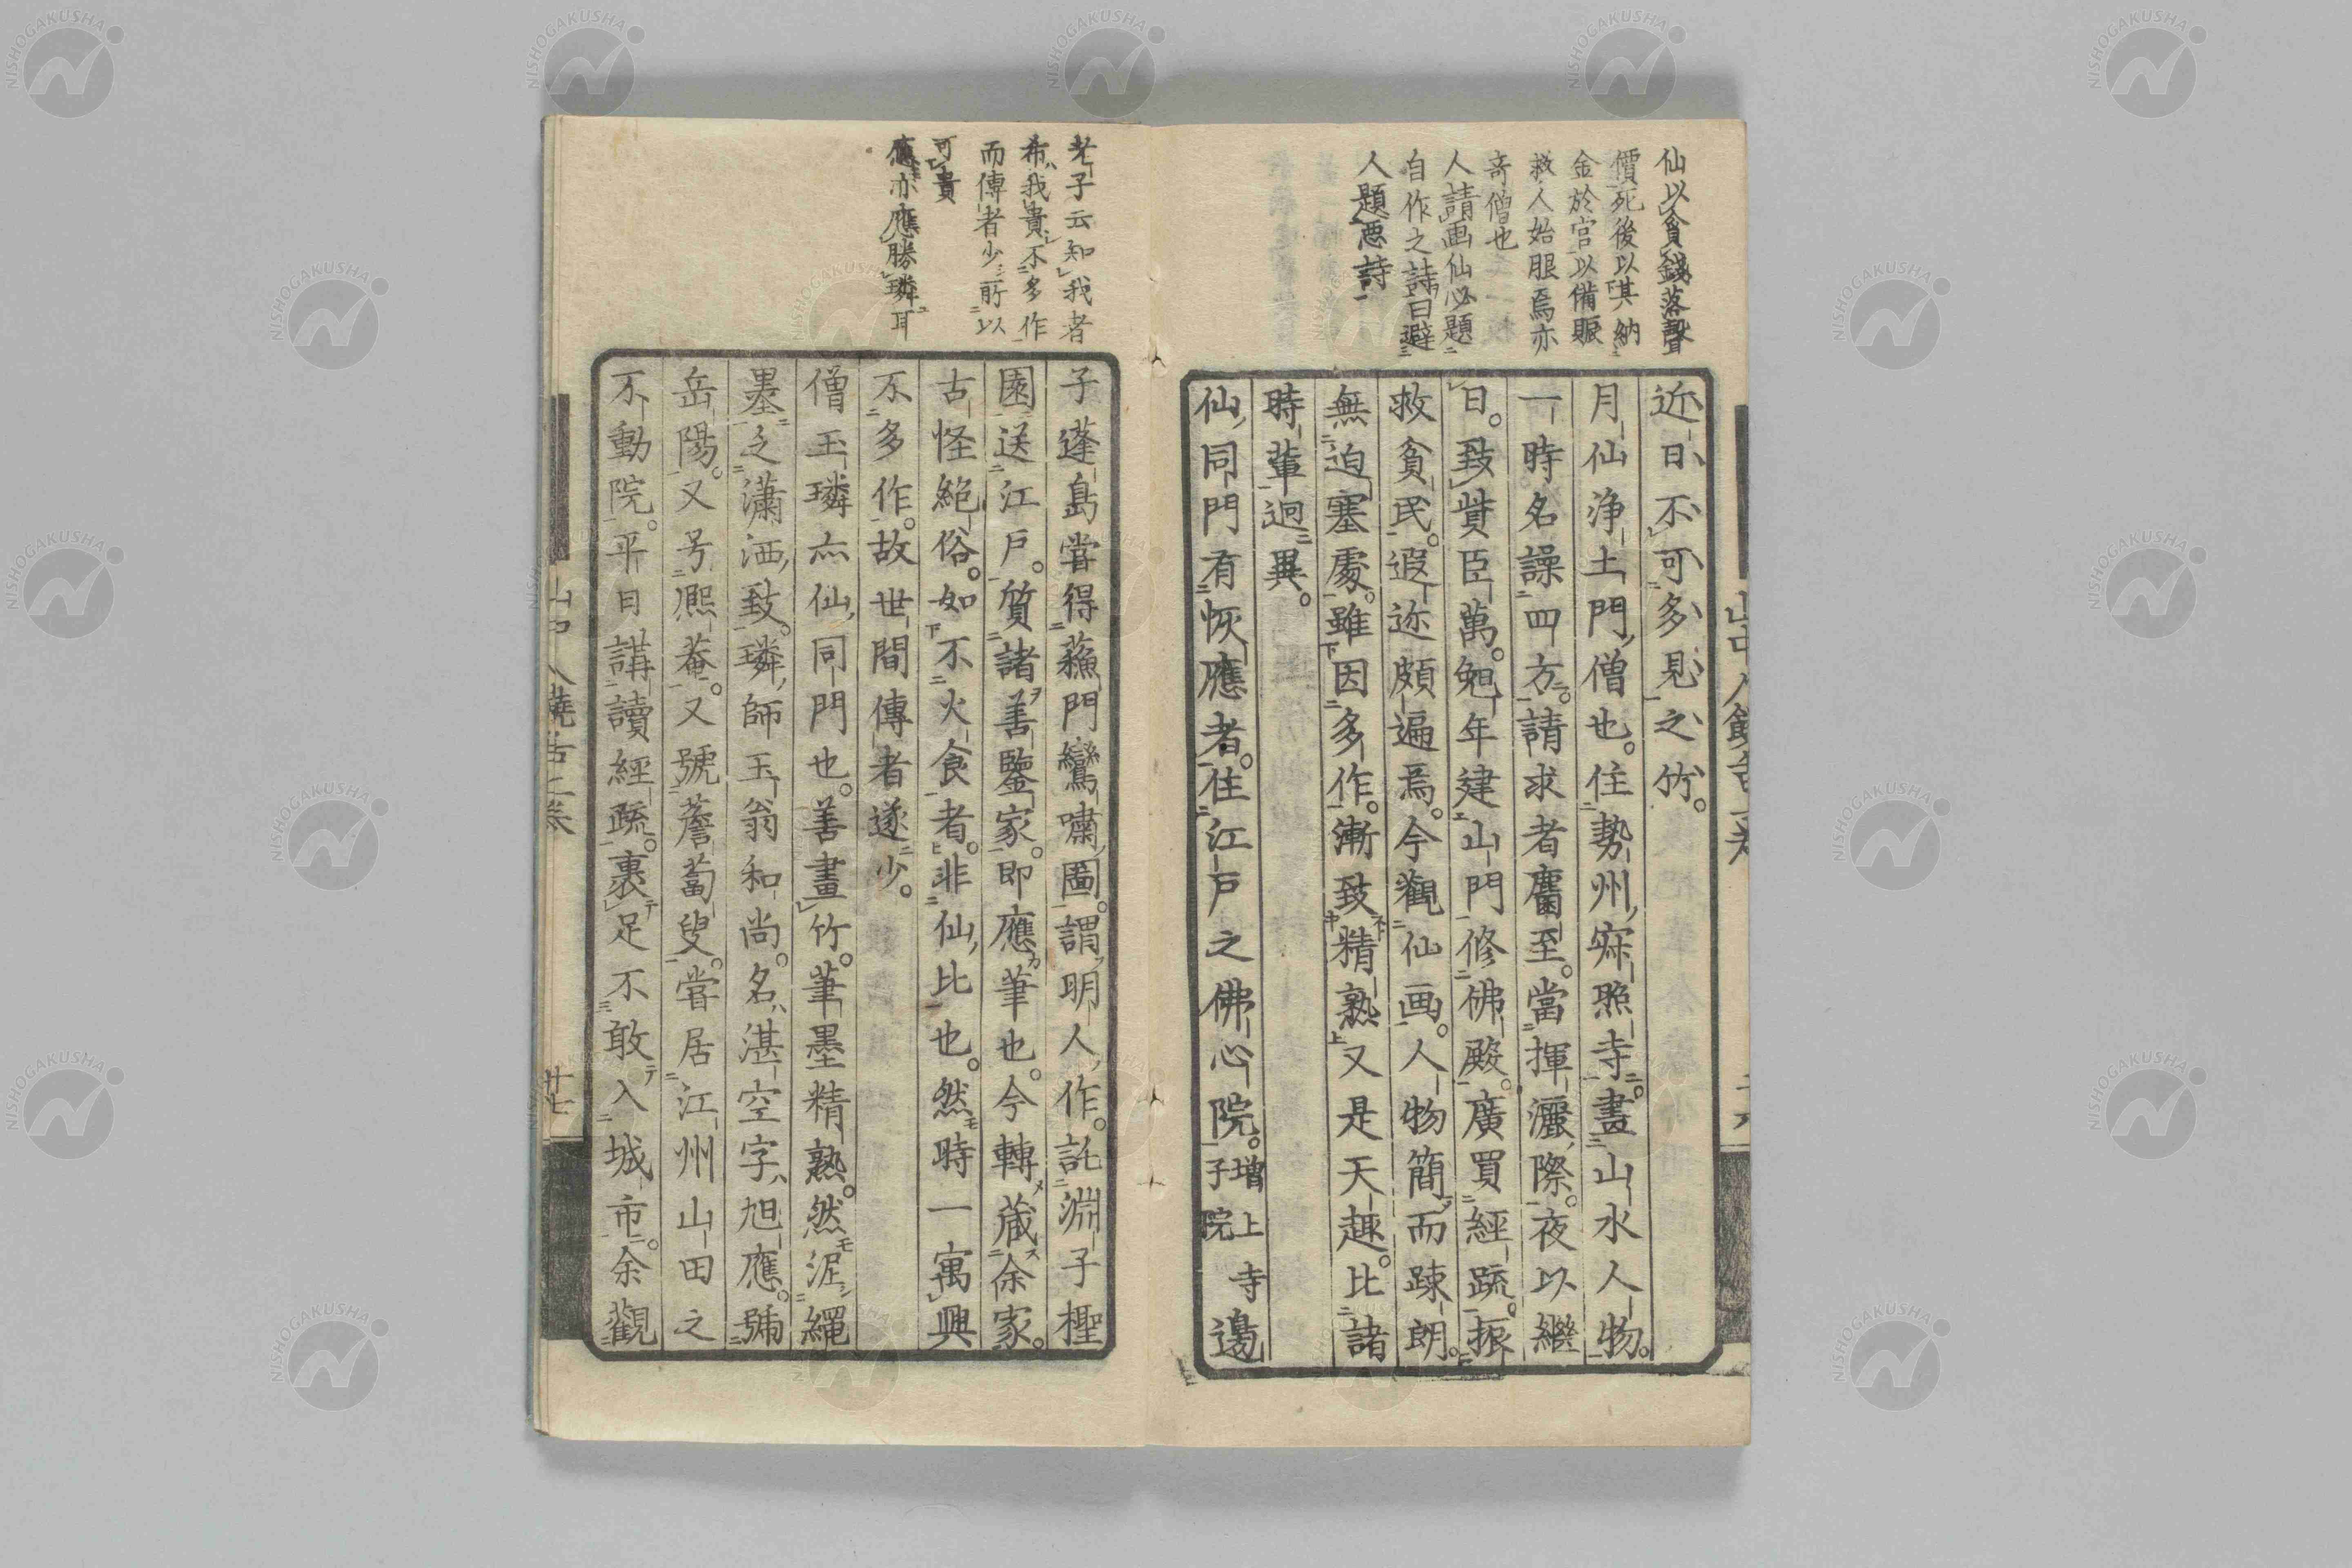 仙以貪錢落聲
價死後以其納
金於官以備賑
救人始服焉亦
奇僧也
人請画仙必題
自作之詩曰避
人題惡詩
近日不可多見之竹。
月仙浄土門僧也。住勢州寂照寺。畫山水人物。
一時名譟四方。請求者麕至。當揮灑際。夜以繼
日。致貲巨萬。兇年建山門修佛殿。廣買經疏。振
救貧民。遐迩頗遍焉。今觀仙画。人物簡而踈朗。
無迫塞處。雖因多作。漸致精熟又是天趣。比諸
時輩迥異。
仙同門有恢應者。住江戸之佛心院。増上寺子院邊
老子云知我者
希我貴不多作
而傳者少所以
可貴
應亦應勝璘耳
子蓬島嘗得蘓門鸞嘯圖。謂明人作。託淵子檉
園送江戸。質諸善鑒家。即應筆也。今轉蔵余家。
古怪絶俗。如不火食者。非仙比也。然時一寓興
不多作。故世間傳者遂少。
僧玉璘亦仙同門也。善畫竹。筆墨精熟。然泥繩
墨乏瀟洒致。璘師玉翁和尚。名湛空字旭應。號
岳陽。又号熈菴。又號薝蔔叟。嘗居江州山田之
不動院。平日講讀經疏。裹足不敢入城市。余觀
廿七